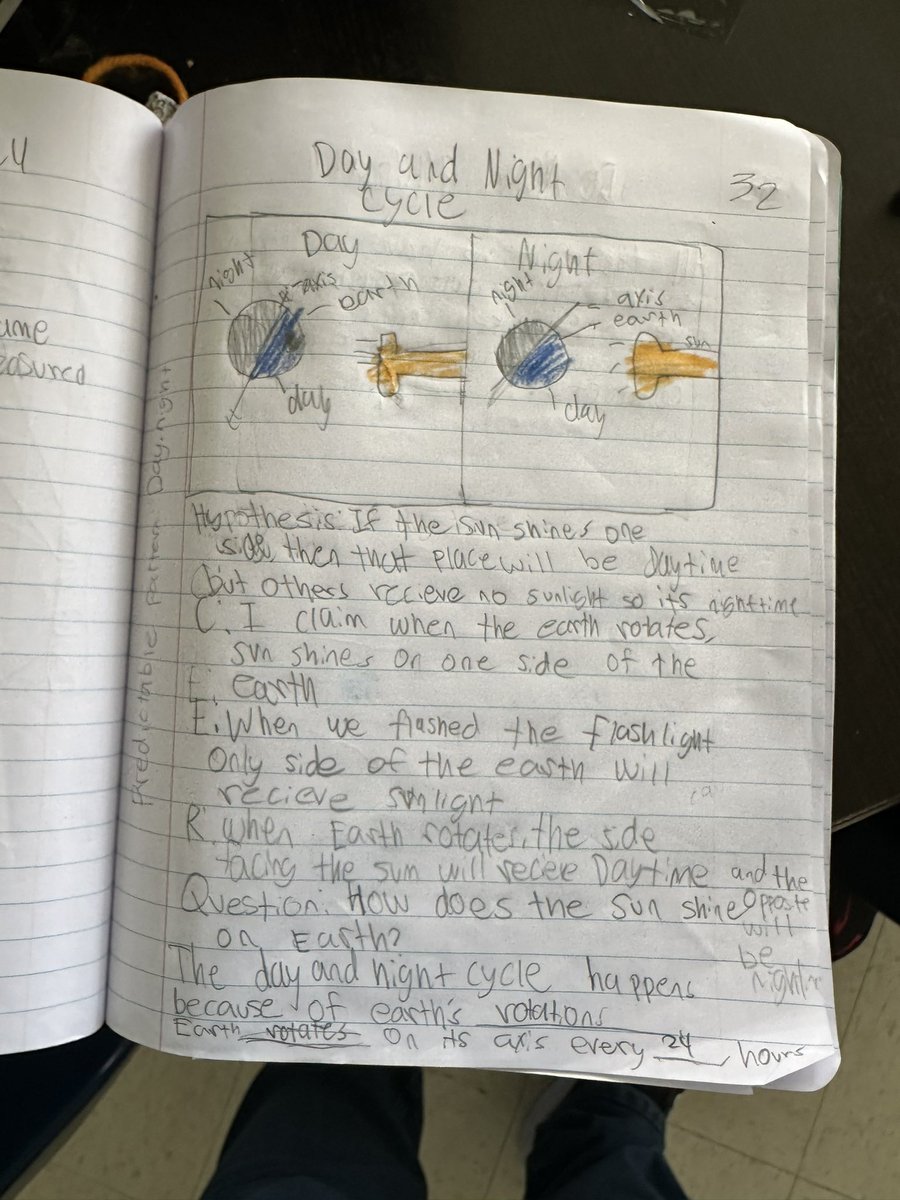 Day and Night
Cycle
32
Day
night
axis
earth
day
Night
night
axis
earth
sun
day
Predictable Patter: Day-night
Hypothesis: If the sun shines one
side, then that place will be daytime
but others recieve no sunlight so its nighttime
C: I claim when the earth rotates,
sun shines on one side of the
E: earth
E: When we flashed the flashlight
only side of the earth will
recieve sunlight
R: when Earth rotates, the side
facing the sun will receve Daytime and the
opposte
will
be
Question: How does the sun shine
on Earth?
The day and night cycle happens
because of earth's rotations
Earth rotates on its axis every 24 hours